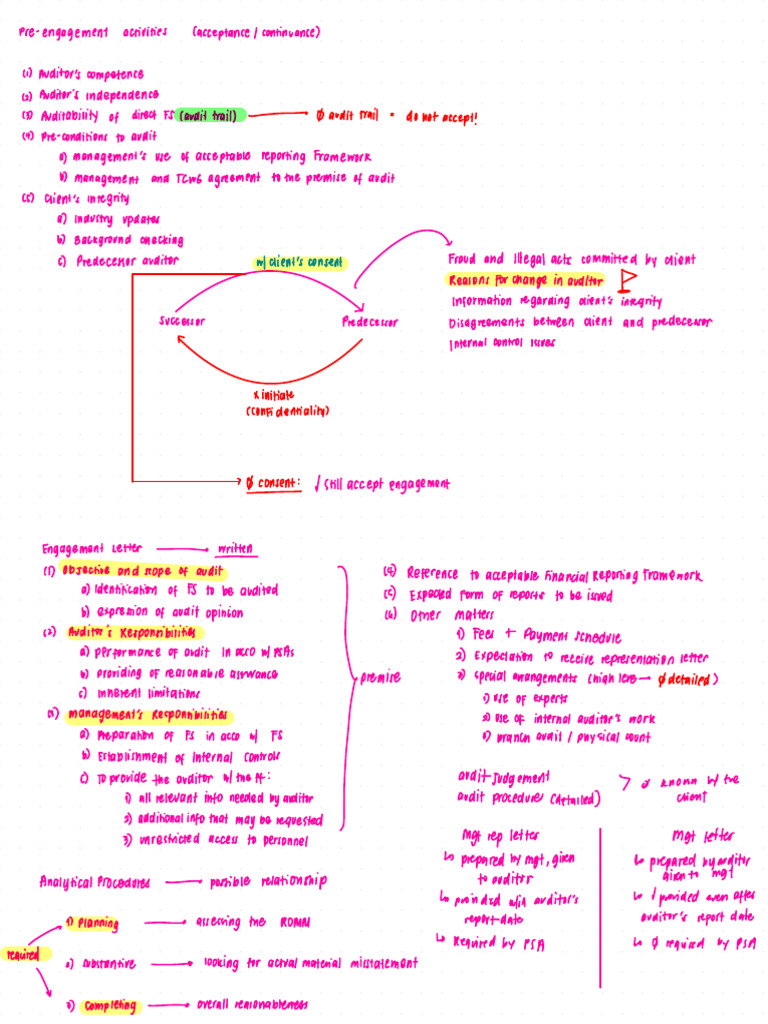 Pre-engagement activities (acceptance / continuance)
(1) Auditor's competence
(2) Auditor's independence
(3) Auditability of direct FS (audit trail) → Ø audit trail = do not accept!
(4) Pre-conditions to audit
a) management's use of acceptable reporting Framework
b) management and TCWG agreement to the premise of audit
(5) Client's integrity
a) Industry updates
b) Background checking
c) Predecessor auditor
w/ client's consent
Successor
Predecessor
x initiate
(confidentiality)
Fraud and Illegal acts committed by client
Reasons for change in auditor
Information regarding client's integrity
Disagreements between client and predecessor
Internal control issues
Ø consent: √ still accept engagement
Engagement Letter → written
(1) Objective and scope of audit
a) Identification of FS to be audited
b) expression of audit opinion
(2) Auditor's Responsibilities
a) performance of audit in acco w/ PSAs
b) providing of reasonable assurance
c) inherent limitations
(3) management's Responsibilities
a) Preparation of FS in acco w/ FS
b) Establishment of Internal Controls
c) To provide the auditor w/ the ff:
1) all relevant info needed by auditor
2) additional info that may be requested
3) unrestricted access to personnel
premise
(4) Reference to acceptable Financial Reporting Framework
(5) Expected form of reports to be issued
(6) Other matters
1) Fees + Payment schedule
2) Expectation to receive representation letter
3) special arrangements (high level — Ø detailed)
1) use of experts
2) use of internal auditor's work
3) branch audit / physical count
audit judgement
audit procedure (detailed)
> Ø known by the
client
Mgt rep letter
↳ prepared by mgt, given
to auditor
↳ provided w/in auditor's
report date
↳ Required by PSA
Mgt letter
↳ prepared by auditor
given to mgt
↳ √ provided even after
auditor's report date
↳ Ø required by PSA
Analytical Procedures → possible relationship
required
1) Planning → assessing the ROMM
2) substantive → looking for actual material misstatement
3) Completing → overall reasonableness